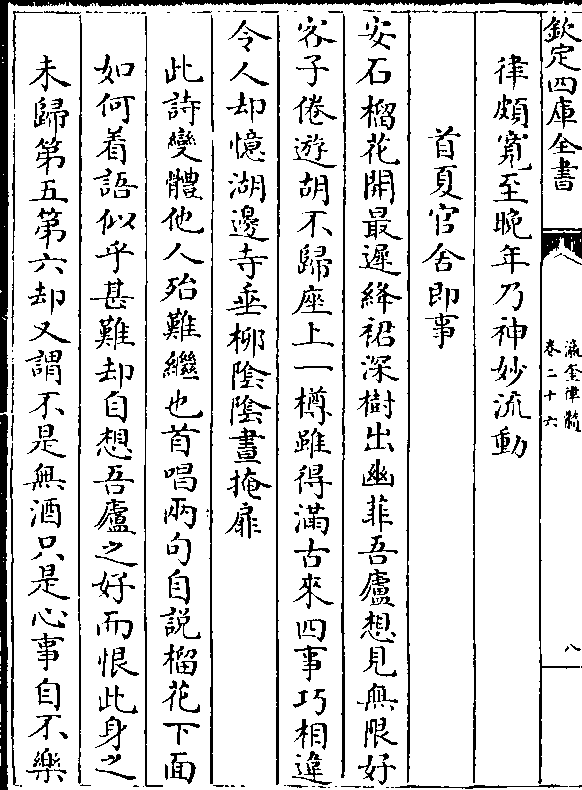 欽定四庫全書
瀛奎律髓
卷二十六
八
律頗寛至晚年乃神妙流動
首夏官舍即事
安石榴花開最遲絳裙深樹出幽菲吾廬想見無限好
客子倦遊胡不歸座上一樽雖得滿古來四事巧相違
令人却憶湖邊寺垂柳陰陰晝掩扉
此詩變體他人殆難繼也首唱兩句自說榴花下面
如何着語似乎甚難却自想吾廬之好而恨此身之
未歸第五第六却又謂不是無酒只是心事自不樂